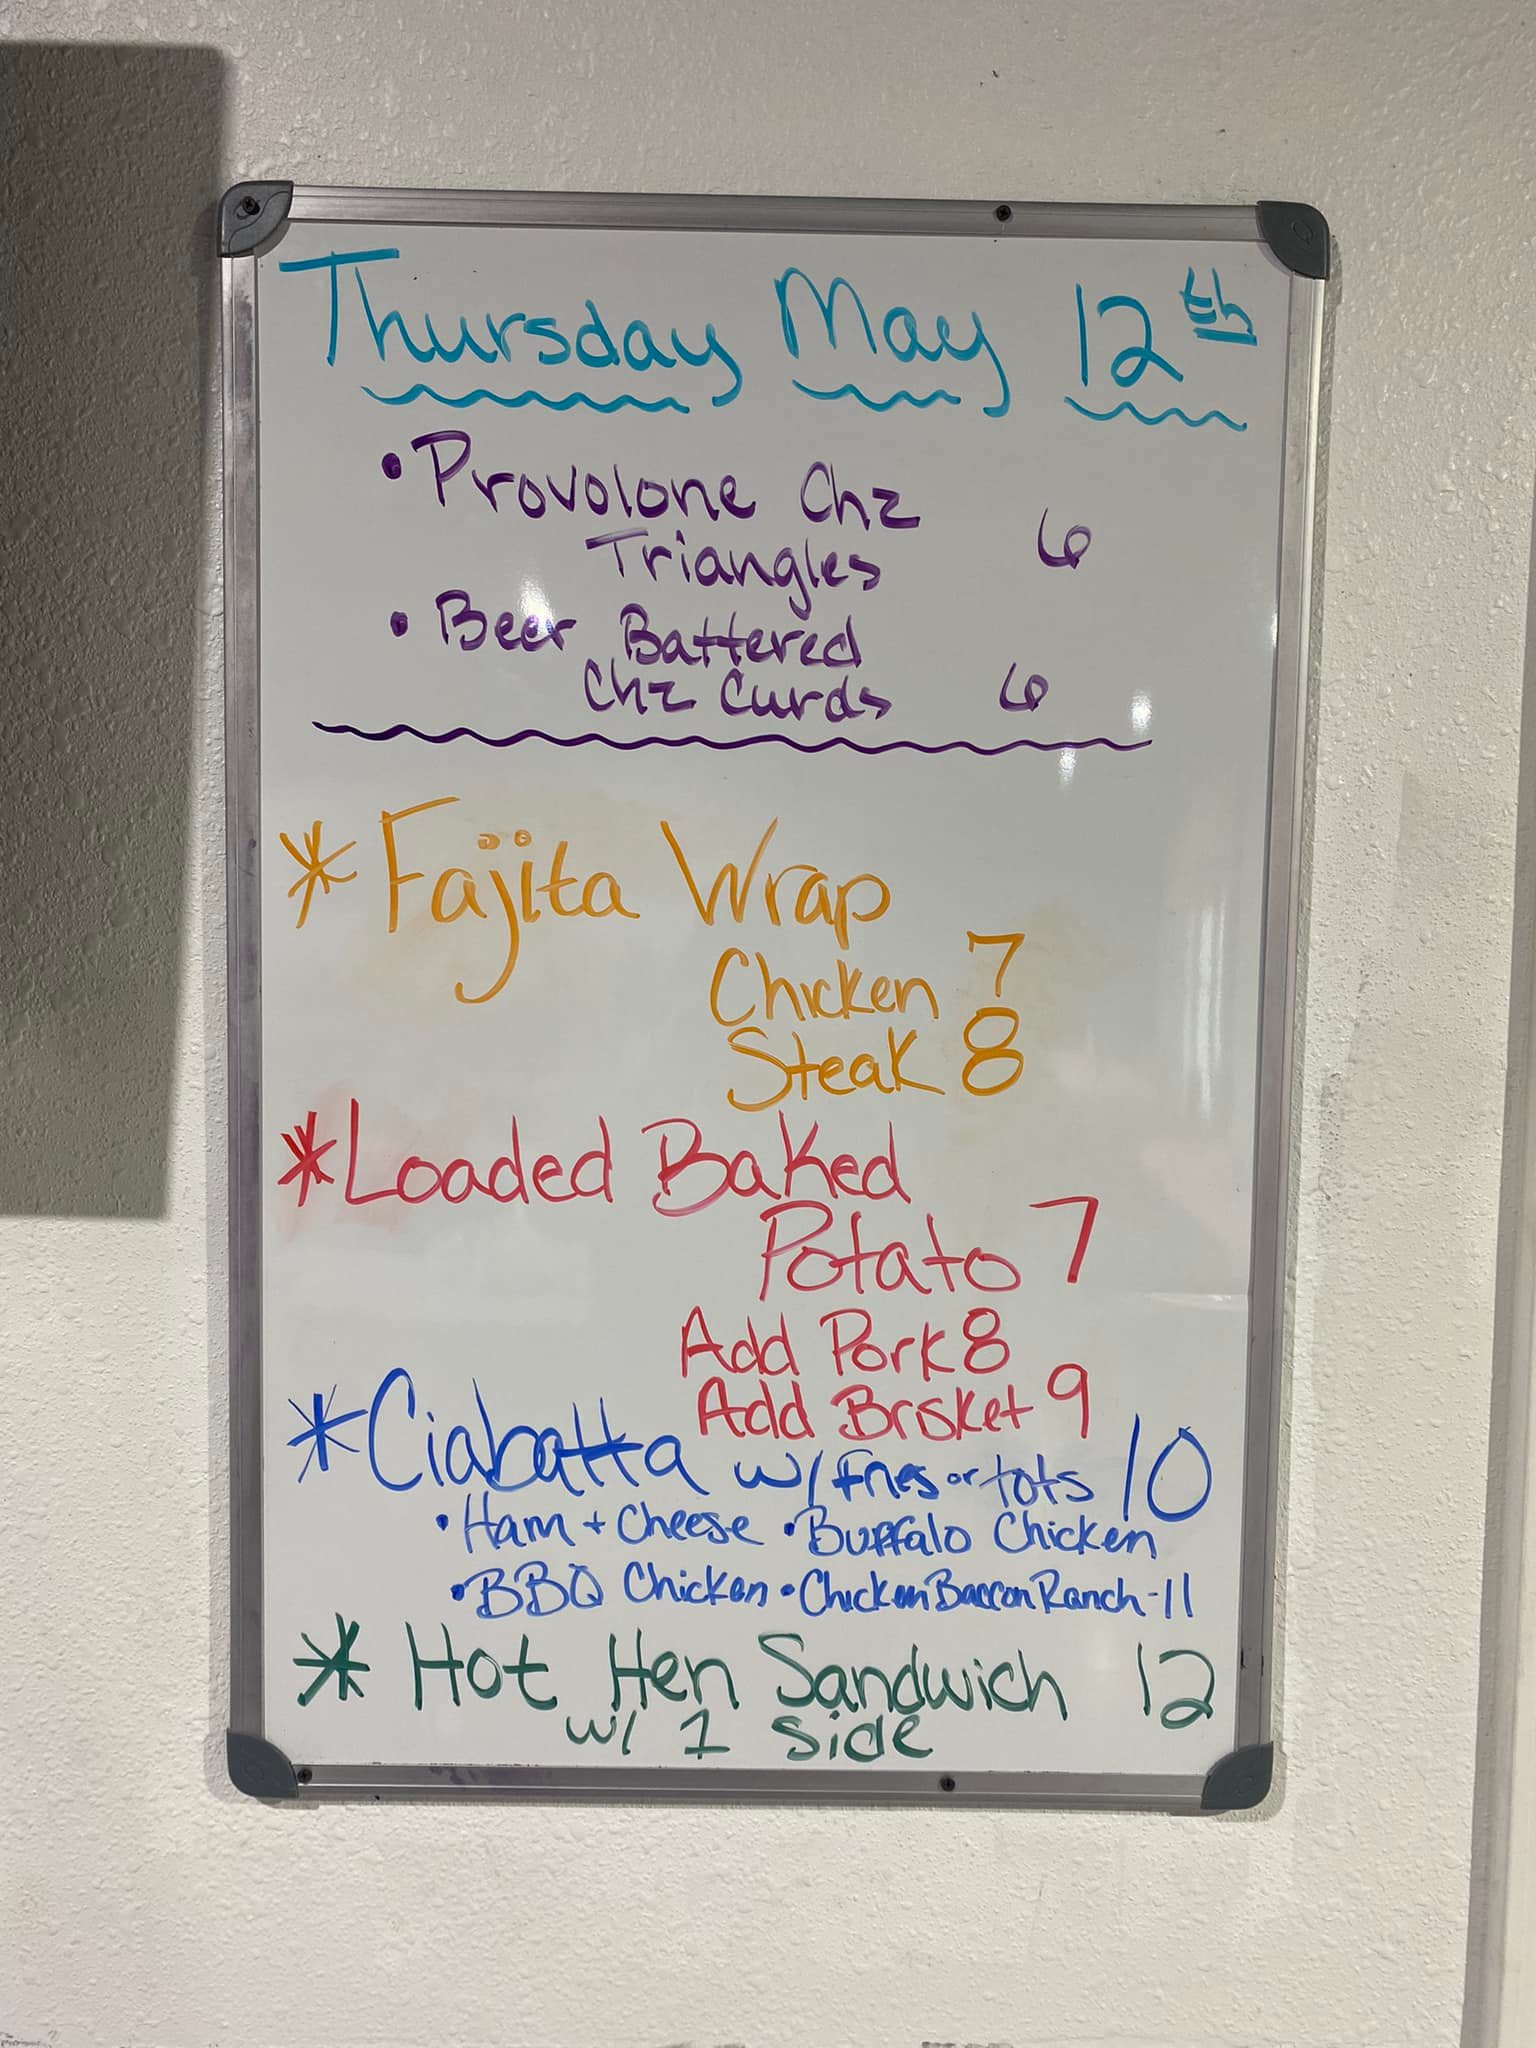 Thursday May 12th
• Provolone Chz
Triangles 6
• Beer Battered
Chz Curds 6
* Fajita Wrap
Chicken 7
Steak 8
* Loaded Baked
Potato 7
Add Pork 8
Add Brisket 9
* Ciabatta w/ Fries or tots 10
• Ham + Cheese • Buffalo Chicken
• BBQ Chicken • Chicken Bacon Ranch - 11
* Hot Hen Sandwich 12
w/ 1 side